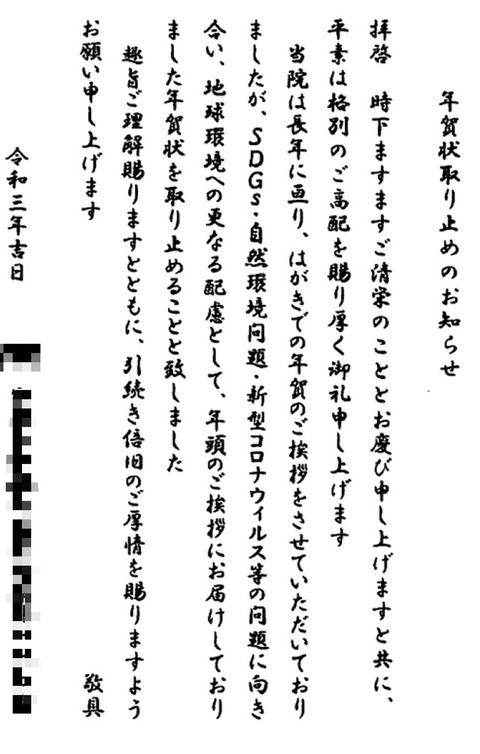 年賀状取り止めのお知らせ
拝啓　時下ますますご清栄のこととお慶び申し上げますと共に、
平素は格別のご高配を賜り厚く御礼申し上げます
当院は長年に亘り、はがきでの年賀のご挨拶をさせていただいており
ましたが、SDGs・自然環境問題・新型コロナウィルス等の問題に向き
合い、地球環境への更なる配慮として、年頭のご挨拶にお届けしており
ました年賀状を取り止めることと致しました
趣旨ご理解賜りますとともに、引続き倍旧のご厚情を賜りますよう
お願い申し上げます
敬具
令和三年吉日